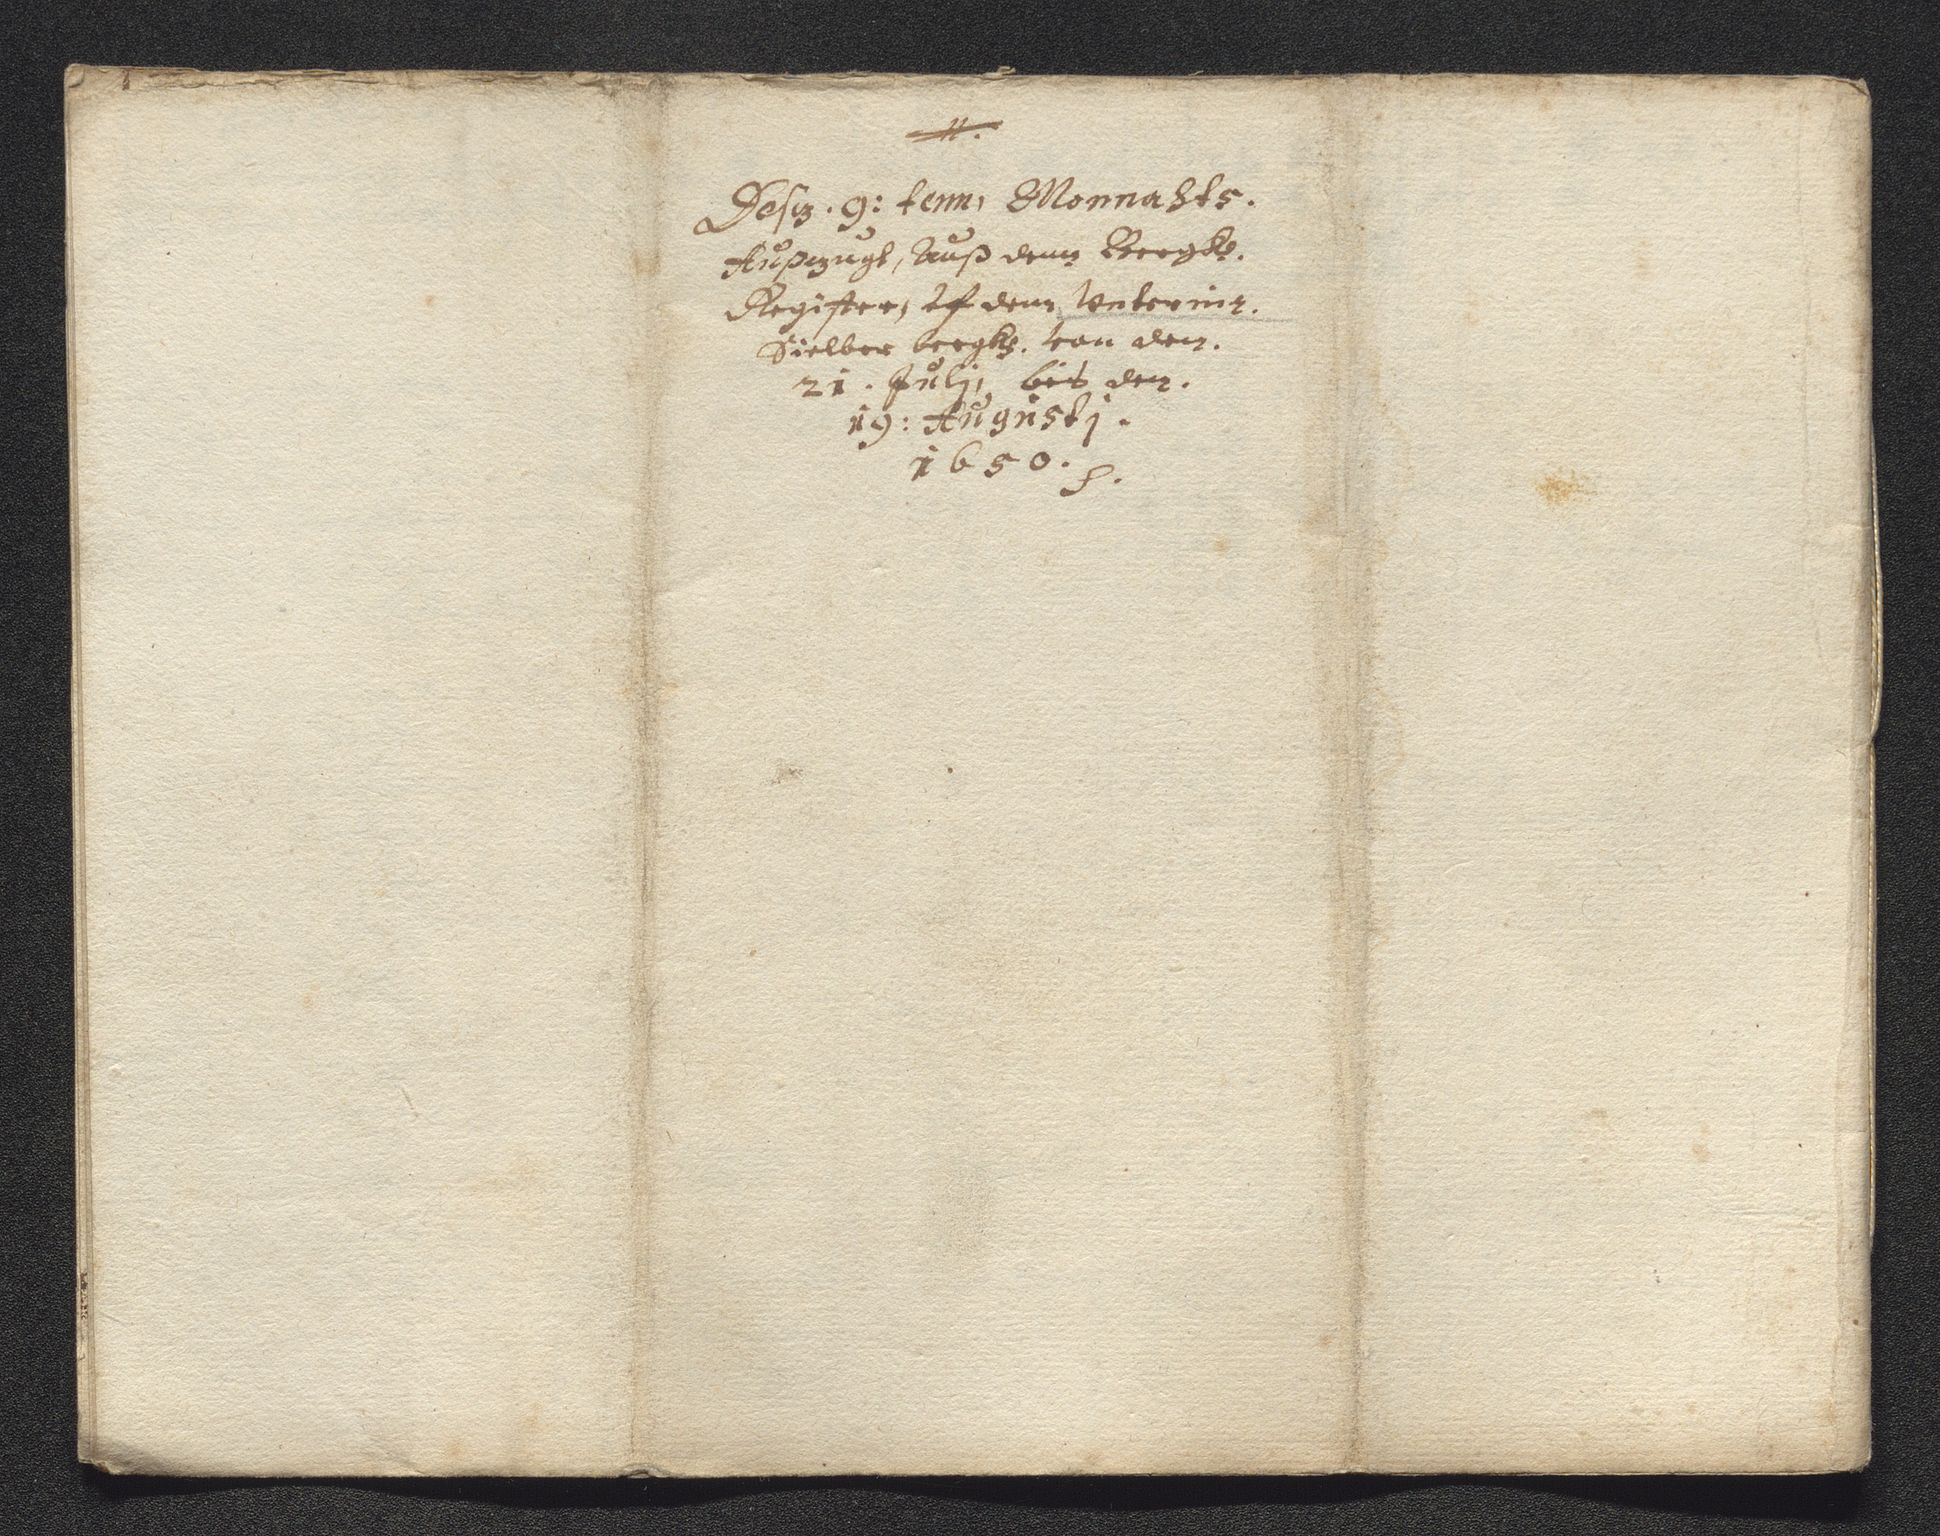 11.
Desz. 9: tenn, Monnahts.
Außzugk, Auß dem Bergks.
Register, uf dem Unterim.
Sielber bergks. von den.
21. Julj, bis den.
19: Augustj.
1650.